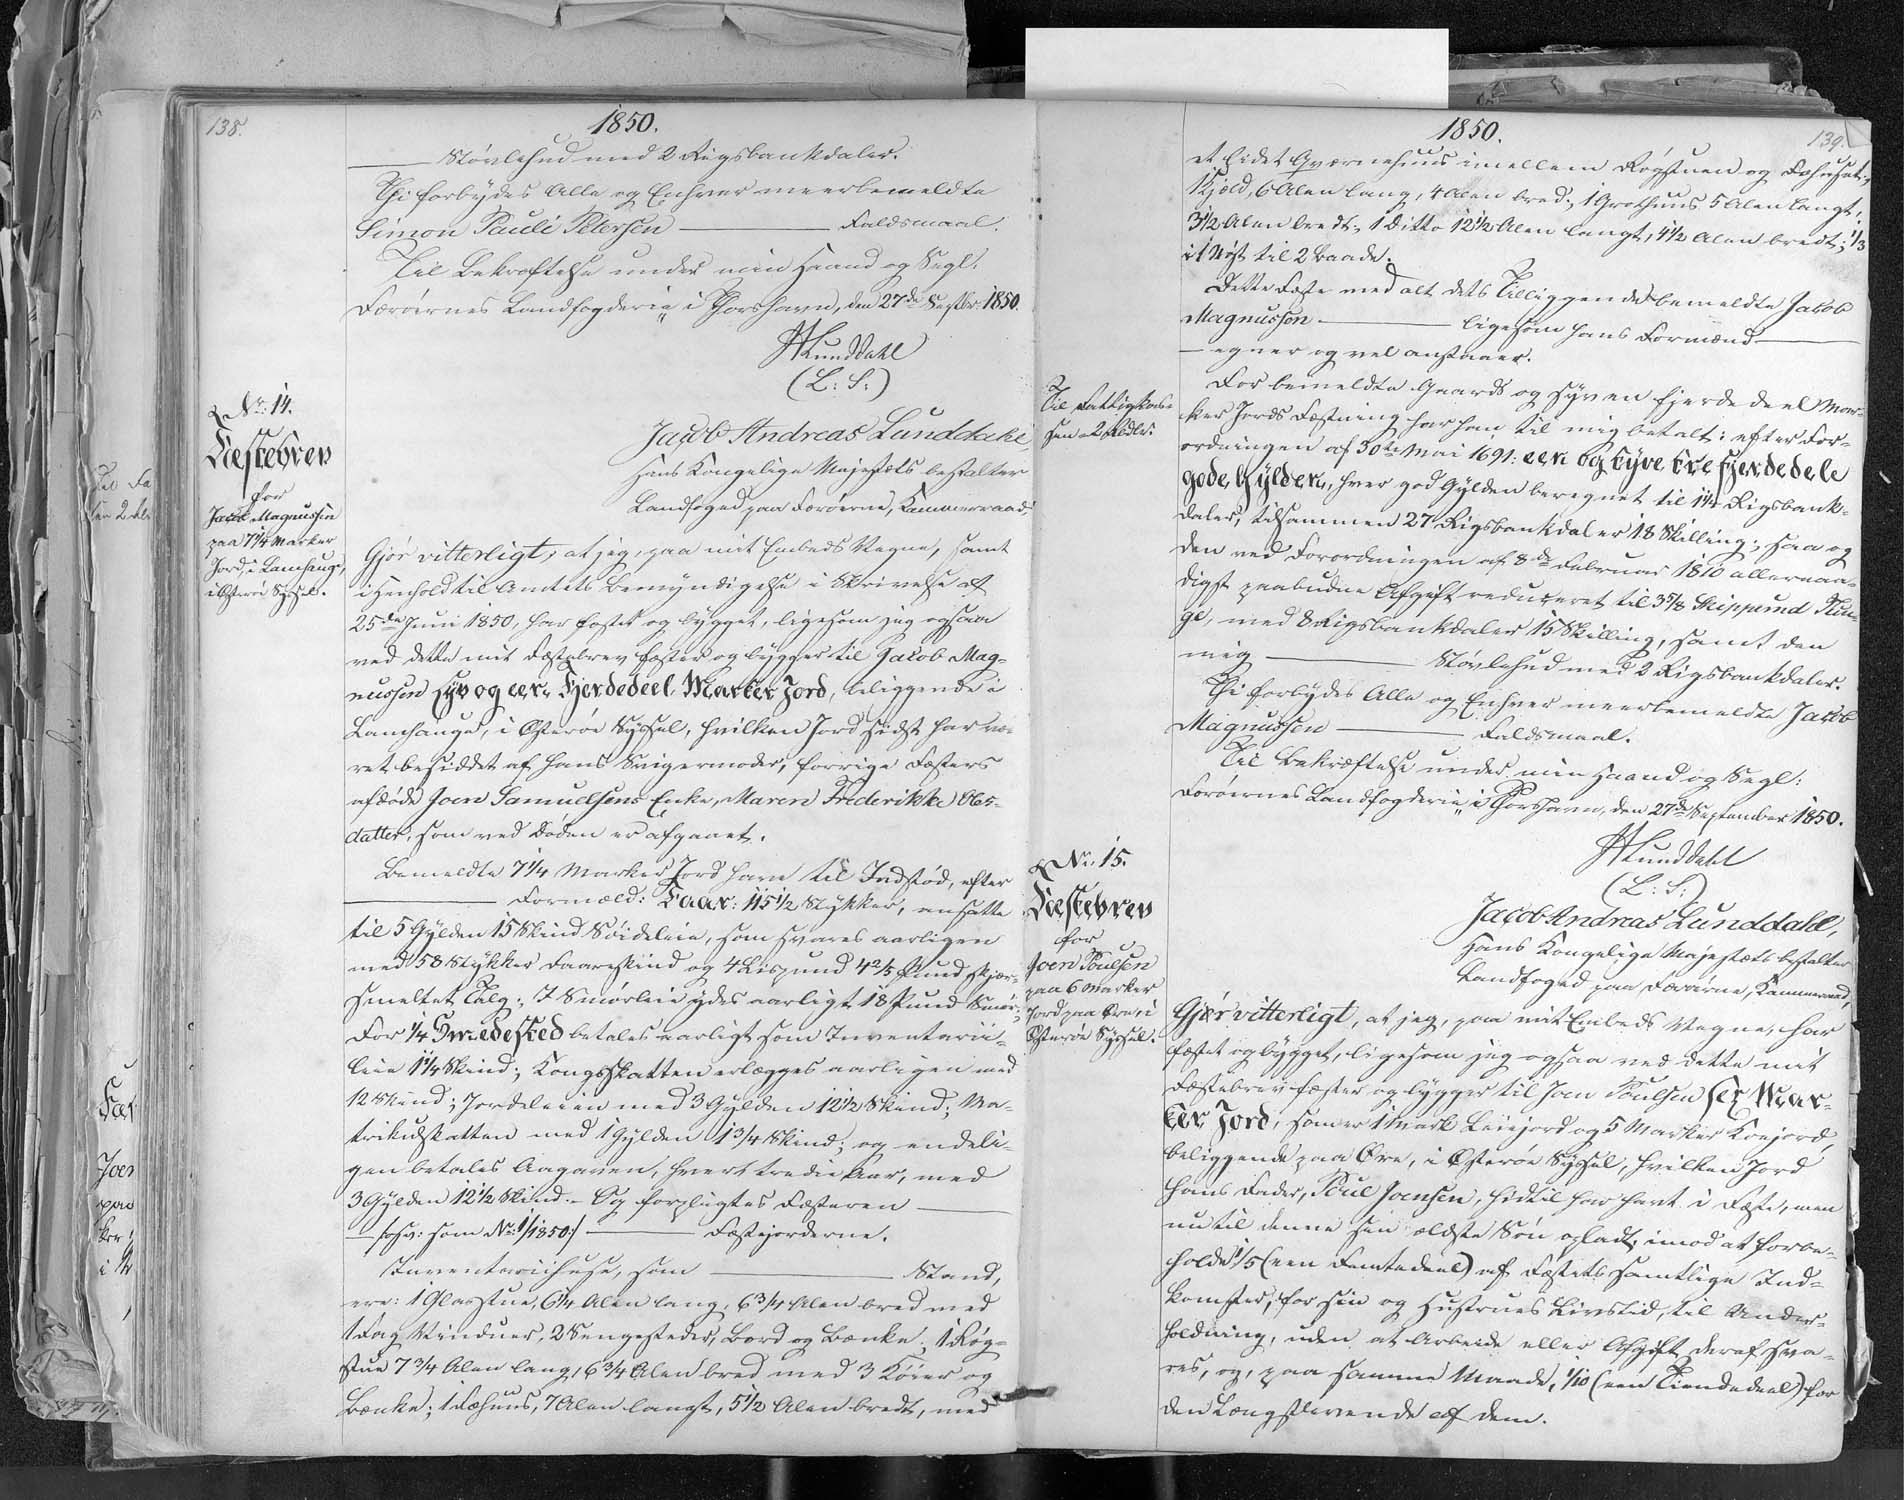 138.
1850.
Støvlehud med 2 Rigsbankdaler.
Thi forbydes Alle og Enhver meerbemeldte
Simon Pauli Petersen ——— Faldsmaal.
Til Bekræftelse under min Haand og Segl.
Færøernes Landfogderie i Thorshavn, den 27de Septbr. 1850.
HLunddahl
(L: S:)
No. 14.
Fæstebrev
for
Jacob Magnussen
paa 7¼ Marker
Jord, i Lamhauge,
i Østerø Syssel.
Jacob Andreas Lunddahl,
Hans Kongelige Majestæts bestalter
Landfoged paa Færøerne, Kammerraad,
Gjør vitterligt, at jeg, paa mit Embeds Vegne, samt
i Henhold til Amtets Bemyndigelse i Skrivelse af
25de Juni 1850, har fæstet og bygget, ligesom jeg ogsaa
ved dette mit Fæstebrev fæster og bygger til Jacob Mag-
nussen syv og een Fjerdedeel Marker Jord, beliggende i
Lamhauge, i Østerøe Syssel, hvilken Jord sidst har væ-
ret besiddet af hans Svigermoder, forrige Fæsters
afdøde Joen Samuelsens Enke, Maren Frederikke Oles-
datter, som ved Døden er afgaaet.
Bemeldte 7¼ Marker Jord have til Indstød, efter
——— Formæld: Faar: 115½ Stykker, ansatte
til 5 Gylden 15 Skind Søideleie, som svares aarligen
med 58 Stykker Faareskind og 4 Lispund 4⅖ Pund skjær-
smeltet Talg; I Smørleie ydes aarligt 18 Pund Smør;
For ¼ Smedested betales aarligt som Inventarii-
leie 1¼ Skind; Kongsskatten erlægges aarligen med
12 Skind; Jordeleien med 3 Gylden 12½ Skind; Ma-
trikulskatten med 1 Gylden 1¾ Skind; og endeli-
gen betales Aagaven, hvert tredie Aar, med
3 Gylden 12½ Skind. – Og forpligtes Fæsteren ———
——— som No. 1/1850:/ ——— Fæstejorderne.
Inventariihuse, som ——— Stand,
ere: 1 Glasstue, 6¼ Alen lang, 6¾ Alen bred med
1 Fag Vinduer, 2 Sengesteder, Bord og Bænke; 1 Røg-
stue 7¾ Alen lang, 6¾ Alen bred med 3 Køier og
Bænke; 1 Fæhuus, 7 Alen langt, 5½ Alen bredt, med
1850.
139.
et lidet Qværnehuus imellem Røgstuen og Fæhuset;
1 Hjald, 6 Alen lang, 4 Alen bred; 1 Grothuus 5 Alen langt,
3½ Alen bredt; 1 Ditto 12½ Alen langt, 4½ Alen bredt; ⅓
i 1 Nøst til 2 Baade.
Dette Fæste med alt dets Tilliggende bemeldte Jacob
Magnussen ——— ligesom hans Formænd ———
——— egner og vel anstaaer.
Til Fattigkas-
sen 2 Rbdlr.
For bemeldte Gaards og syv en fjerdedeel Mar-
ker Jords Fæstning har han til mig betalt: efter For-
ordningen af 30te Mai 1691: een og tyve tre fjerdedele
gode Gylden, hver god Gylden beregnet til 1¼ Rigsbank-
daler, tilsammen 27 Rigsbankdaler 18 Skilling; saa og
den ved Forordningen af 8de Februar 1810 allernaa-
digst paabudne Afgift reduceret til 3⅝ Skippund Tun-
ge, med 8 Rigsbankdaler 15 Skilling, samt den
mig ——— Støvlehud med 2 Rigsbankdaler.
Thi forbydes Alle og Enhver meerbemeldte Jacob
Magnussen ——— Faldsmaal.
Til Bekræftelse under min Haand og Segl:
Færøernes Landfogderie i Thorshavn, den 27de September 1850.
HLunddahl
(L: S:)
No. 15.
Fæstebrev
for
Joen Poulsen
paa 6 Marker
Jord paa Øre, i
Østerøe Syssel.
Jacob Andreas Lunddahl,
Hans Kongelige Majestæts bestalter
Landfoged paa Færøerne, Kammerraad,
Gjør vitterligt, at jeg, paa mit Embeds Vegne, har
fæstet og bygget, ligesom jeg ogsaa ved dette mit
Fæstebrev fæster og bygger til Joen Poulsen sex Mar-
ker Jord, som er 1 Mark Leiejord og 5 Marker Koejord,
beliggende paa Øre, i Østerøe Syssel, hvilken Jord
hans Fader, Poul Joensen, hidtil har havt i Fæste, men
nu til denne sin ældste Søn opladt, imod at forbe-
holde 1/5 (een Femtedeel) af Fæstets samtlige Ind-
komster, for sin og Hustrues Livstid, til Under-
holdning, uden at Arbeide eller Afgift deraf sva-
res, og, paa samme Maade, 1/10 (een Tiendedeel) for
den Længstlevende af dem.